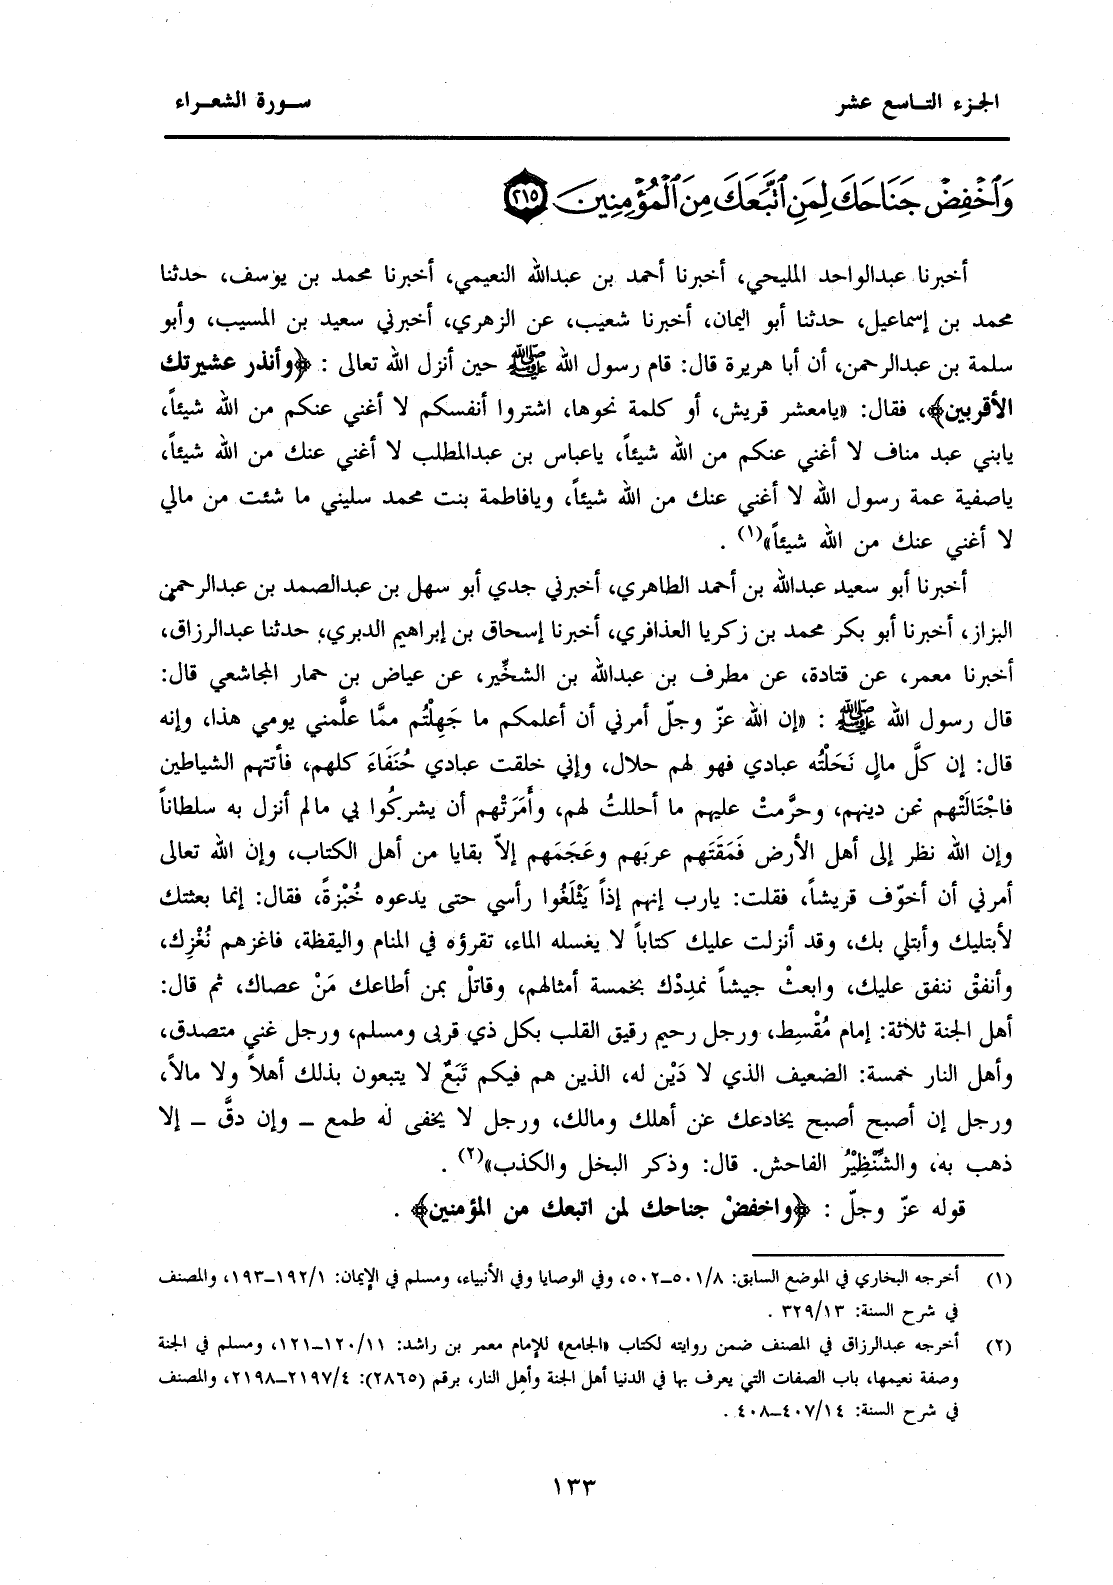 الجزء التاسع عشر
سورة الشعراء
وَٱخْفِضْ جَنَاحَكَ لِمَنِ ٱتَّبَعَكَ مِنَ ٱلْمُؤْمِنِينَ ٢١٥
أخبرنا عبدالواحد المليحي، أخبرنا أحمد بن عبدالله النعيمي، أخبرنا محمد بن يوسف، حدثنا
محمد بن إسماعيل، حدثنا أبو اليمان، أخبرنا شعيب، عن الزهري، أخبرني سعيد بن المسيب، وأبو
سلمة بن عبدالرحمن، أن أبا هريرة قال: قام رسول الله ﷺ حين أنزل الله تعالى : ﴿وأنذر عشيرتك
الأقربين﴾، فقال: «يامعشر قريش، أو كلمة نحوها، اشتروا أنفسكم لا أغني عنكم من الله شيئاً،
يابني عبد مناف لا أغني عنكم من الله شيئاً، ياعباس بن عبدالمطلب لا أغني عنك من الله شيئاً،
ياصفية عمة رسول الله لا أغني عنك من الله شيئاً، ويافاطمة بنت محمد سليني ما شئت من مالي
لا أغني عنك من الله شيئاً»(١) .
أخبرنا أبو سعيد عبدالله بن أحمد الطاهري، أخبرني جدي أبو سهل بن عبدالصمد بن عبدالرحمن
البزاز، أخبرنا أبو بكر محمد بن زكريا العذافري، أخبرنا إسحاق بن إبراهيم الدبري، حدثنا عبدالرزاق،
أخبرنا معمر، عن قتادة، عن مطرف بن عبدالله بن الشخِّير، عن عياض بن حمار المجاشعي قال:
قال رسول الله ﷺ : «إن الله عزّ وجلّ أمرني أن أعلمكم ما جَهِلْتُم ممَّا علَّمني يومي هذا، وإنه
قال: إن كلَّ مالٍ نَحَلْتُه عبادي فهو لهم حلال، وإني خلقت عبادي حُنَفَاءَ كلهم، فأتتهم الشياطين
فاجْتَالَتْهم عن دينهم، وحرَّمتْ عليهم ما أحللتُ لهم، وأَمَرَتْهم أن يشركُوا بي مالم أنزل به سلطاناً
وإن الله نظر إلى أهل الأرض فَمَقَتَهم عربَهم وعَجَمَهم إلاّ بقايا من أهل الكتاب، وإن الله تعالى
أمرني أن أخوّف قريشاً، فقلت: يارب إنهم إذاً يَثْلَغُوا رأسي حتى يدعوه خُبْزةً، فقال: إنما بعثتك
لأبتليك وأبتلي بك، وقد أنزلت عليك كتاباً لا يغسله الماء، تقرؤه في المنام واليقظة، فاغزهم نُغْزِك،
وأنفقْ ننفق عليك، وابعثْ جيشاً نمدِدْك بخمسة أمثالهم، وقاتلْ بمن أطاعك مَنْ عصاك، ثم قال:
أهل الجنة ثلاثة: إمام مُقْسِط، ورجل رحيم رقيق القلب بكل ذي قربى ومسلم، ورجل غني متصدق،
وأهل النار خمسة: الضعيف الذي لا دَيْن له، الذين هم فيكم تَبَعٌ لا يتبعون بذلك أهلاً ولا مالاً،
ورجل إن أصبح أصبح يخادعك عن أهلك ومالك، ورجل لا يخفى له طمع ــ وإن دقَّ ــ إلا
ذهب به، والشِّنْظِيْرُ الفاحش. قال: وذكر البخل والكذب»(٢) .
قوله عزّ وجلّ : ﴿واخفضْ جناحك لمن اتبعك من المؤمنين﴾ .
(١) أخرجه البخاري في الموضع السابق: ٨/٥٠١ــ٥٠٢، وفي الوصايا وفي الأنبياء، ومسلم في الإيمان: ١/١٩٢ــ١٩٣، والمصنف
في شرح السنة: ١٣/٣٢٩ .
(٢) أخرجه عبدالرزاق في المصنف ضمن روايته لكتاب «الجامع» للإمام معمر بن راشد: ١١/١٢٠ــ١٢١، ومسلم في الجنة
وصفة نعيمها، باب الصفات التي يعرف بها في الدنيا أهل الجنة وأهل النار، برقم (٢٨٦٥): ٤/٢١٩٧ــ٢١٩٨، والمصنف
في شرح السنة: ١٤/٤٠٧ــ٤٠٨ .
١٣٣